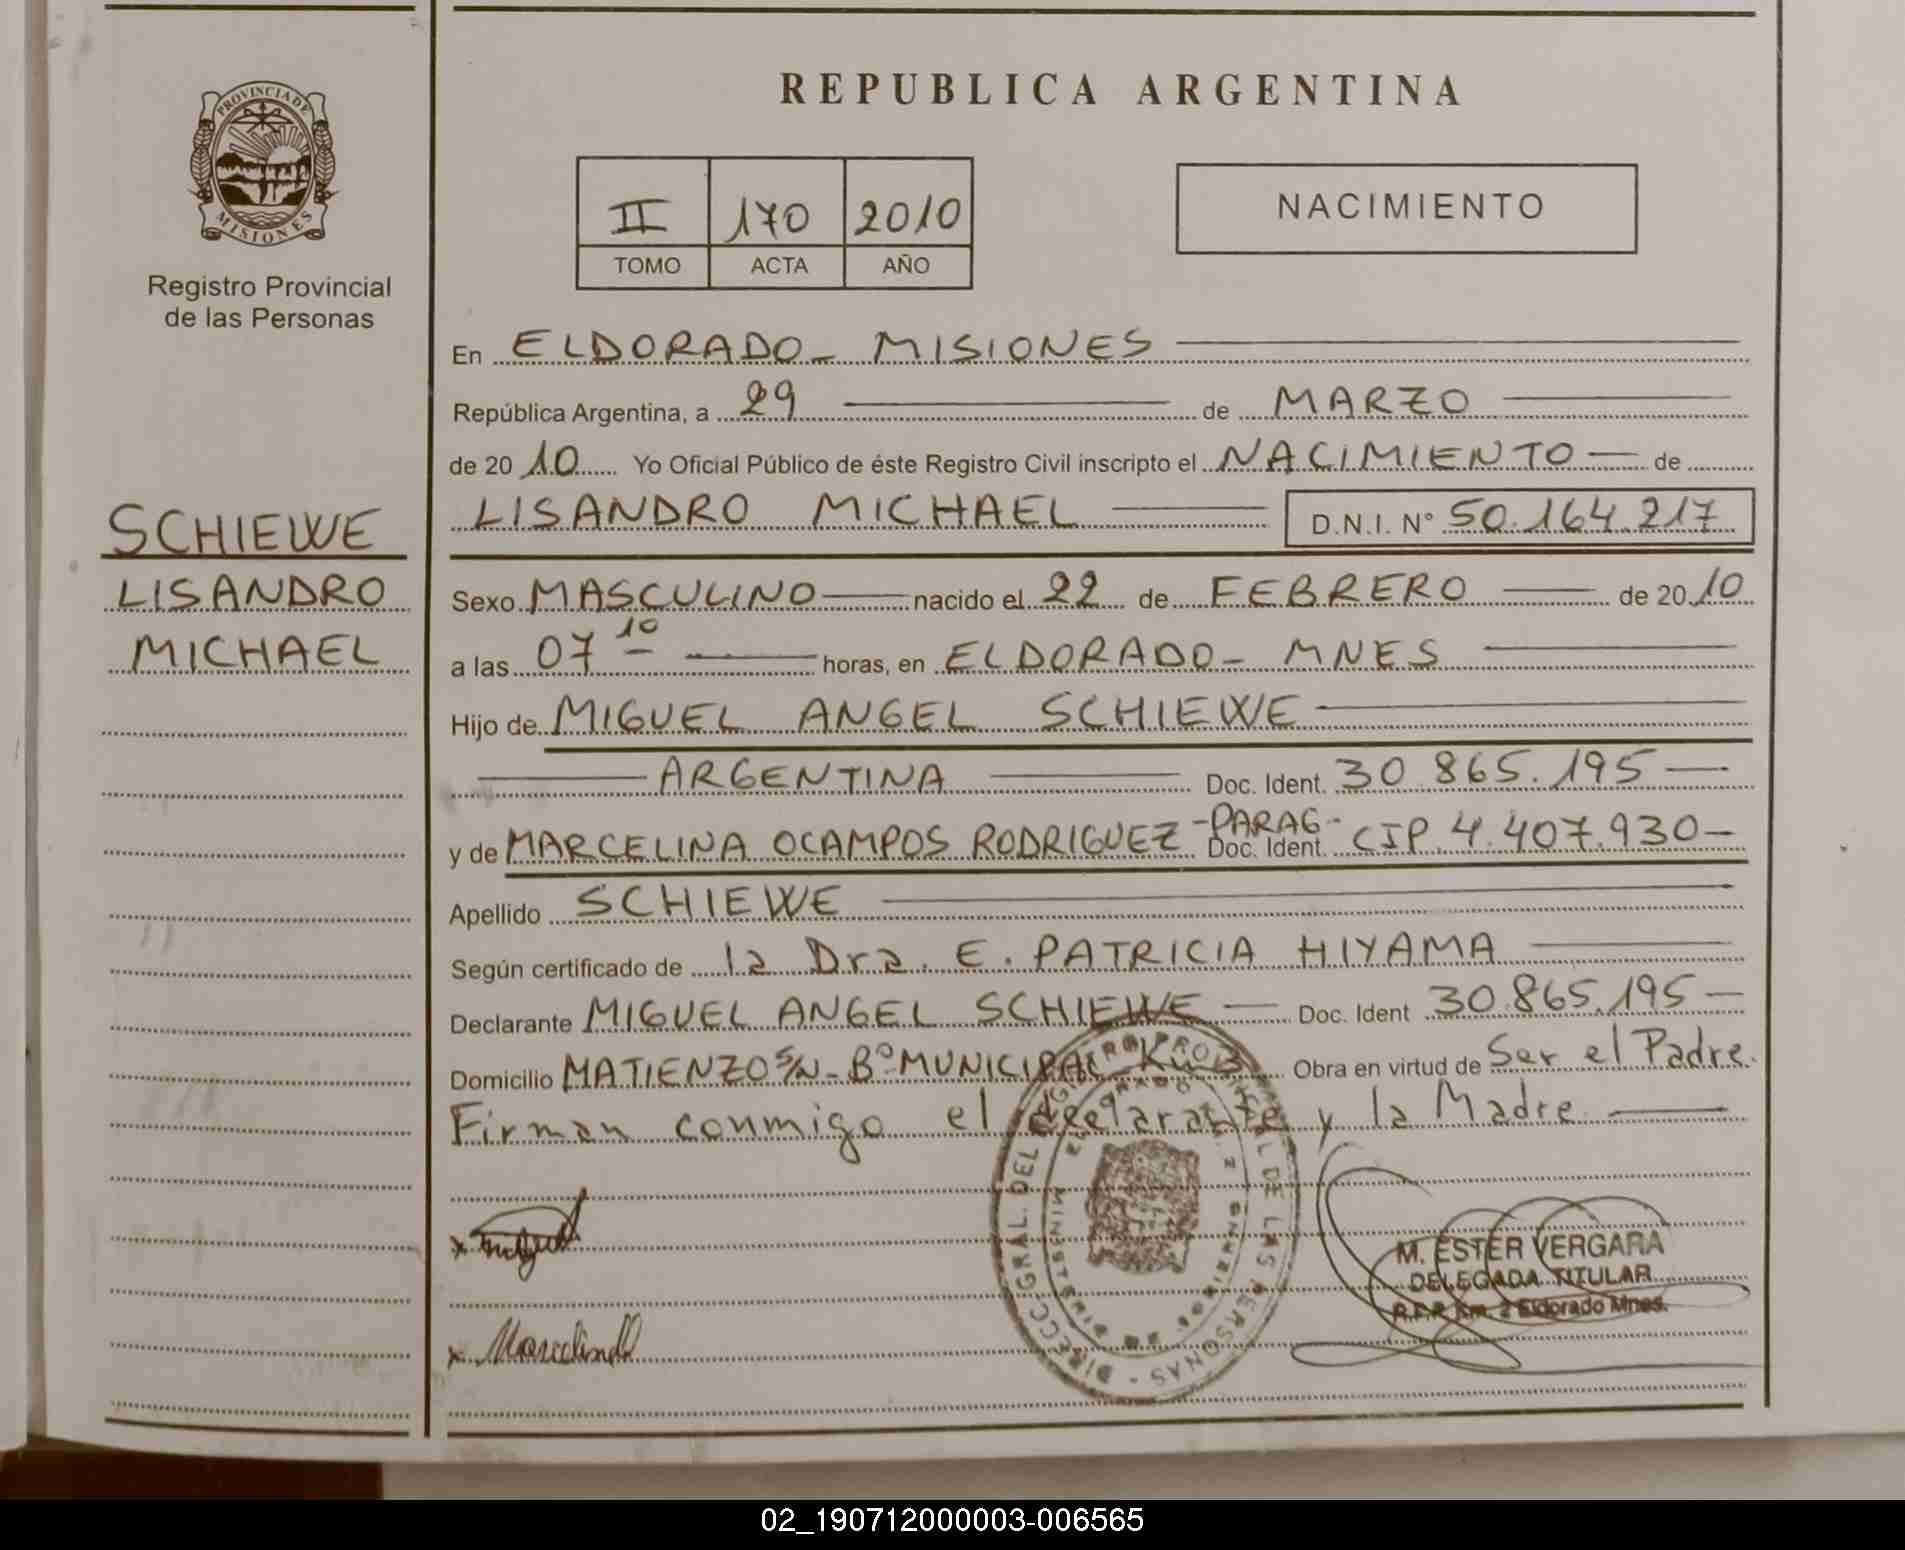 REPUBLICA ARGENTINA
PROVINCIA DE
MISIONES
Registro Provincial
de las Personas
II 170 2010
TOMO ACTA AÑO
NACIMIENTO
SCHIEWE
LISANDRO
MICHAEL
En ELDORADO - MISIONES
República Argentina, a 29 de MARZO
de 20 10 Yo Oficial Público de éste Registro Civil inscripto el NACIMIENTO de
LISANDRO MICHAEL D.N.I. N° 50.164.217
Sexo MASCULINO nacido el 22 de FEBRERO de 20 10
a las 07 10 horas, en ELDORADO - MNES
Hijo de MIGUEL ANGEL SCHIEWE
ARGENTINA Doc. Ident. 30.865.195
y de MARCELINA OCAMPOS RODRIGUEZ - PARAG - Doc. Ident. CIP. 4.407.930
Apellido SCHIEWE
Según certificado de la Dra. E. PATRICIA HIYAMA
Declarante MIGUEL ANGEL SCHIEWE Doc. Ident 30.865.195
Domicilio MATIENZO S/N - B° MUNICIPAL Obra en virtud de Ser el Padre.
Firman conmigo el declarante y la Madre
x Miguel
x Marcelina
DIRECC. GRAL. DEL REGISTRO PROVINCIAL DE LAS PERSONAS
M. ESTER VERGARA
DELEGADA TITULAR
R.P.P. Km. 2 Eldorado Mnes.
02_190712000003-006565